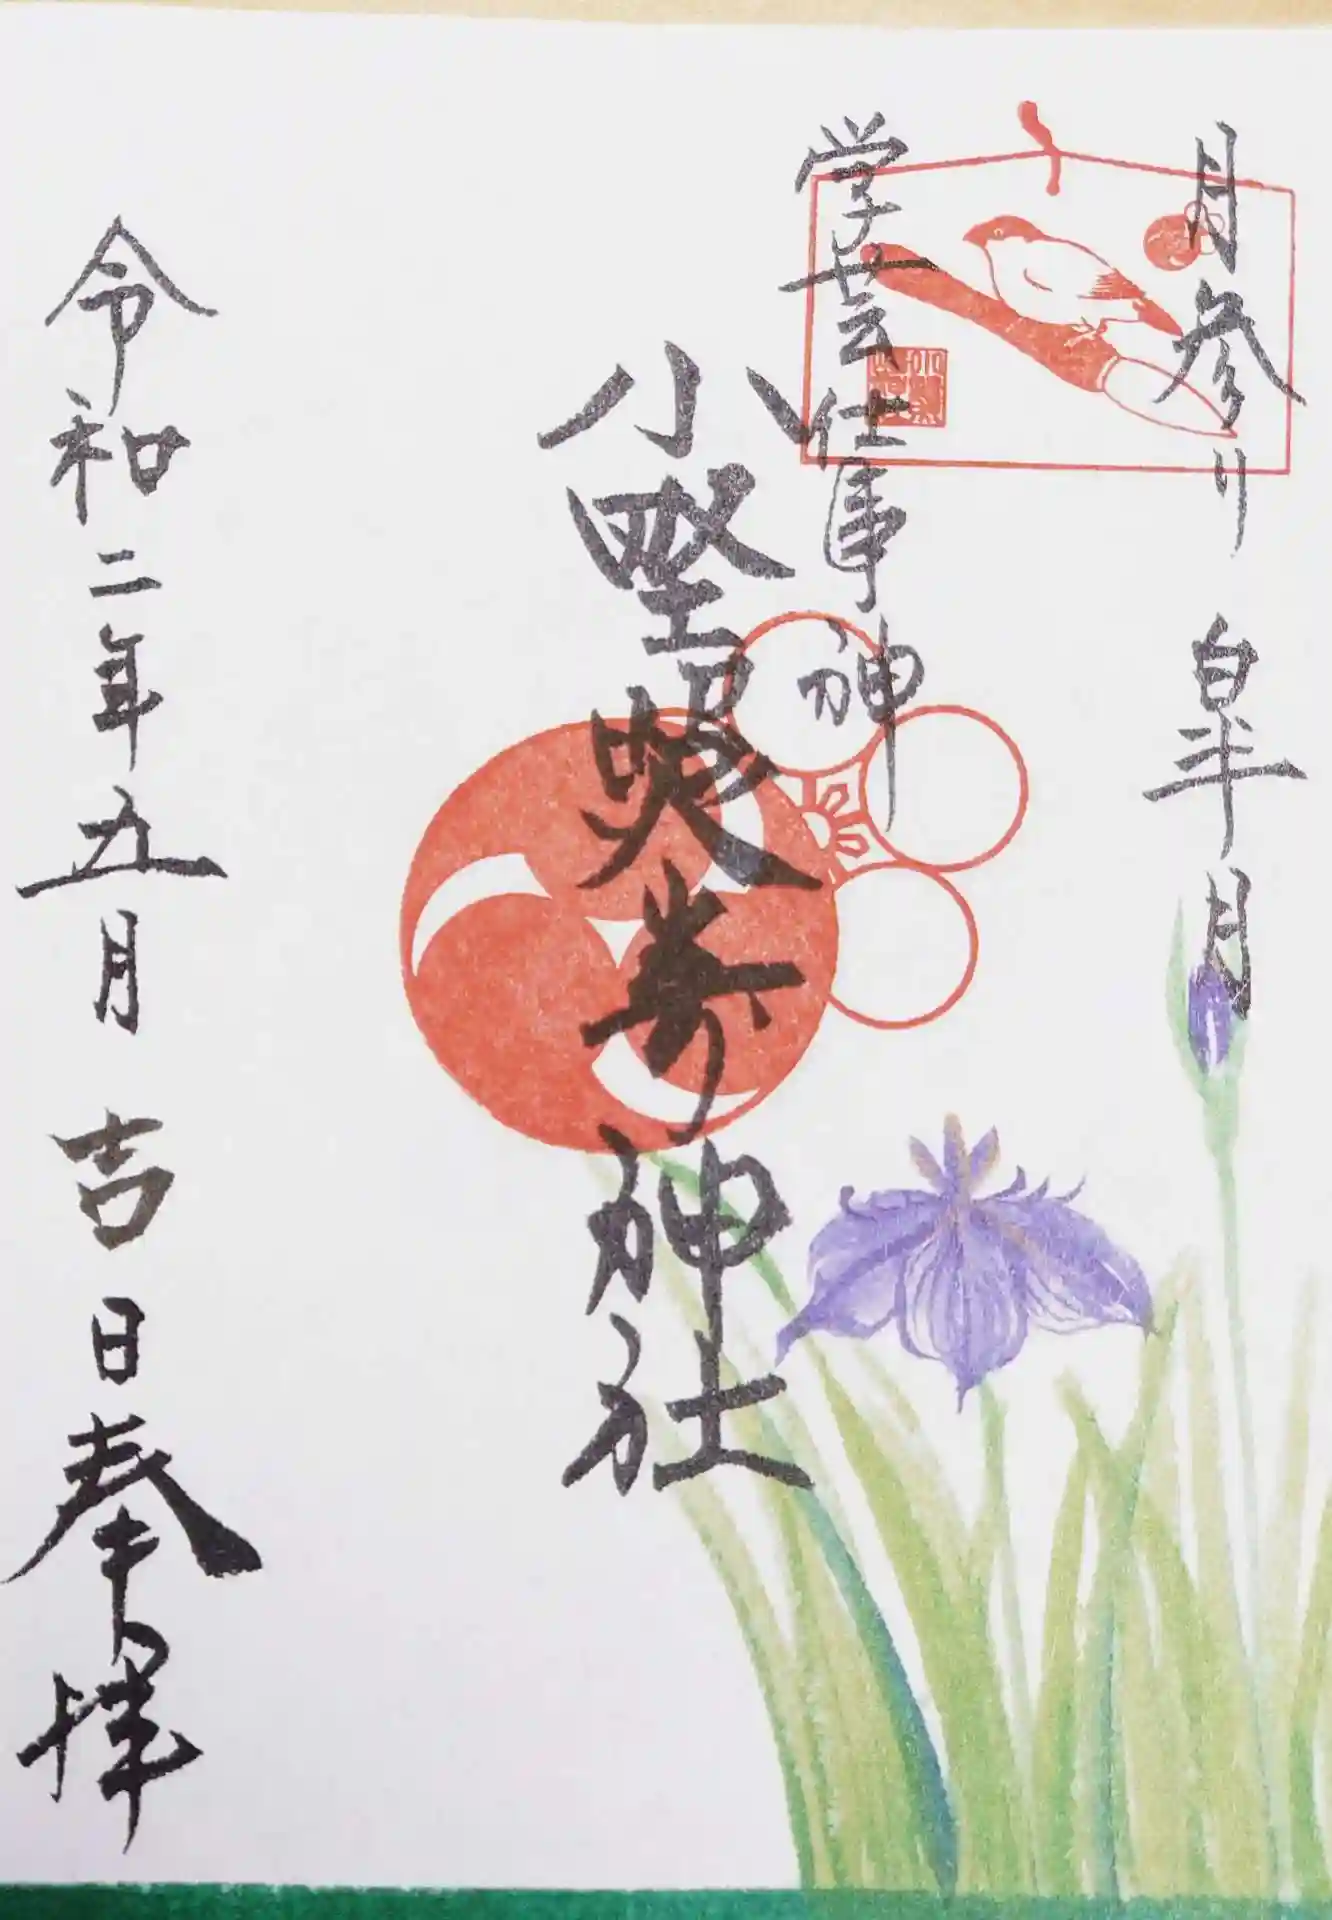 月参り 皐月
学芸仕事神
小野照崎神社
令和二年五月 吉日 奉拝